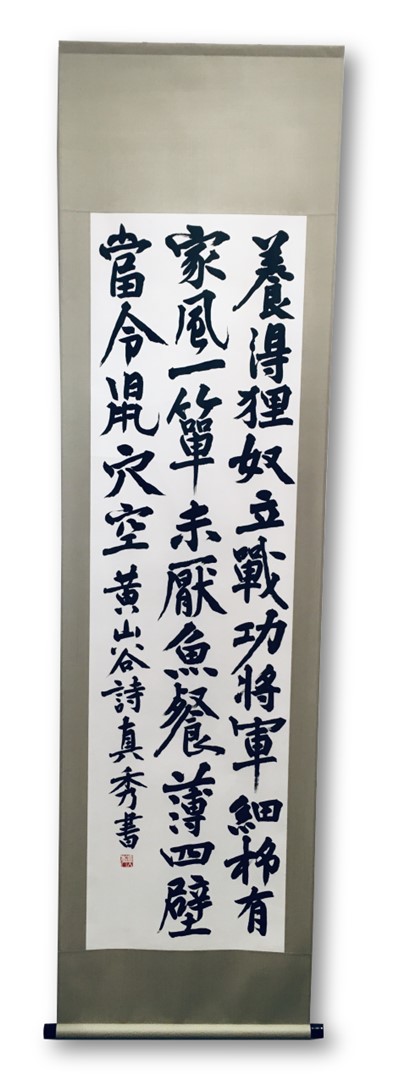 養得狸奴立戰功將軍細栁有
家風一簞未厭魚餐薄四壁
當令鼠穴空黃山谷詩真秀書